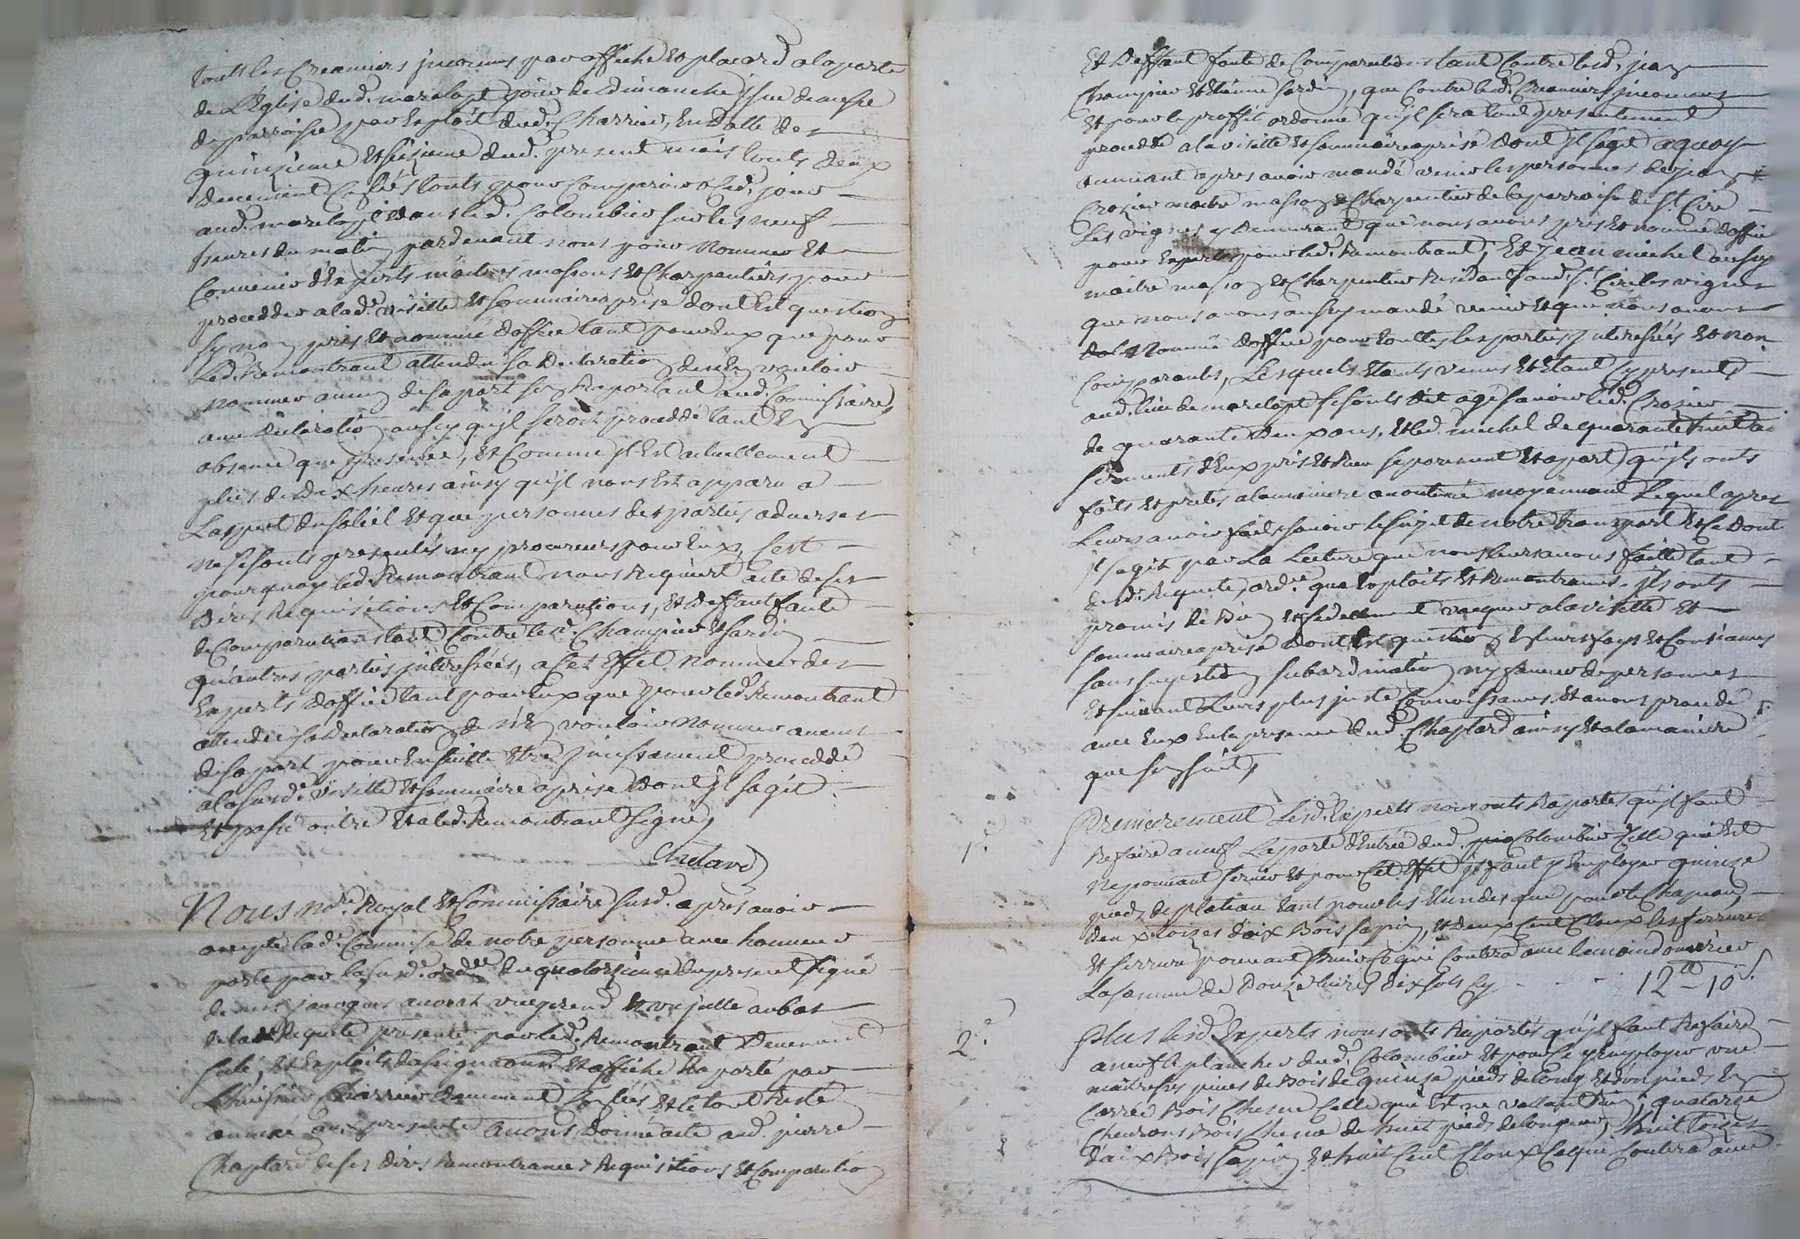 touts les Creanciers jnconnus par affiche et placard a la porte
de L'Eglise dud. marclopt jour de dimanche jssue de messe
de parroisse par Exploit dud. Charrier, En datte des
quinzieme et seizieme dud. present mois touts deux
deuement Controllés touts pour comparoir cejourd. jour
aud. marclopt dans led. Colombier sur les neuf
heures du matin pardevant nous pour nommer et
Convenir d'Experts maitres massons et Charpentiers pour
procedder a lad. visitte et sommaire aprise dont Est question
sy non pris et nommé d'office tant pour Eux que pour
Led. Remontrant attendu sa declaration de n'En vouloir
nommer aucun de sa part s'En Raportant aud. Commissaire,
avec declaration aussy qu'jl seroit procedé tant En
absence que presence, et Comme jl Est actuellement
plus de dix heures ainsy qu'jl nous Est apparu a
Laspect du soleil et que personnes des parties adverses
ne se sont presentés ny procureurs pour Eux, C'est
pourquoy led. Remontrant nous Requiert acte de ses
dires Requisitions et Comparutions, et deffaut faute
de Comparution tant Contre lesd. Champier et Sardin
qu'autres parties jnterressées, a cet Effet nommer des
Experts d'office tant pour Eux que pour led. Remontrant
attendu sa declaration de n'En vouloir nommer aucuns
de sa part pour Ensuitte Etre jncessament procedé
a la susd. visitte et sommaire aprise dont jl s'agit
Et a led. Remontrant signé,
Nous no.re Royal et Commissaire susd. apres avoir
accepté lad. Commise de notre personne avec honneur
portée par la susd. ord.ce du quatorzieme du present signé
de la Requete presentée par led. Remontrant deuement
sélé, et Exploits d'assignations et affiche Raporté par
L'huissier Charrier deuement Conllés et le tout Resté
annexé aux presentes avons donné acte aud. pierre
Chaptard de ses dires Remontrances Requisitions et Comparution
Et deffaut faute de Comparution tant Contre lesd. jean
Champier et Etienne Sardin, que Contre lesd. Creanciers jnconnus
et pour le proffit ordonné qu'jl sera tout presentement
procedé a la visitte et sommaire aprise dont jl s'agit a quoy
venant apres avoir mandé venir les personnes de jean
Crozier maitre masson et Charpentier de la parroisse de St. Cire
Les vignes y demeurant que nous avons pris et nommé d'office
pour Expert pour led. Remontrant, Et jean michel aussy
maitre masson et Charpentier Residant aud. St. Cire les vignes
que nous avons aussy mandé venir et que nous avons
nommé d'office pour touttes les parties jnteressées et non
Comparantes, Lesquels Etants venus et Etant Cy presents
aud. lieu de marclopt se sont dit agé sçavoir led. Crozier
de quarante deux ans, et led. michel de quarante huit ans
serments d'Eux pris et Reçu separement et apart qu'jls onts
faits et pretés a la maniere accoutumé moyennant Lequel apres
Leurs avoir fait sçavoir le sujet de notre transport et ce dont
jl s'agit par La Lecture que nous leurs avons faitte tant
de lad. Requete, ord.ce que Exploits et Remontrances, jls onts
promis de bien et fidellement vacquer a la visitte et
sommaire aprise dont Est question En leurs foys et Consiances
sans sugestion subordination ny faveur de personnes
Et suivant Leurs plus juste Connoissances, et avons procedé
avec Eux En la presence dud. Chaptard ainsy et a la maniere
que s'en suit,
1.° Premierement Lesd. Experts nous onts Raportés qu'jl faut
Refaire a neuf La porte d'Entrée dud. Colombier Celle qui Est
ne pouvant servir et pour Cet Effet jl faut y Employer quinze
pieds de plateau tant pour les que pour le Chapeau,
deux toizes d'aix bois sapin, et deux Cent Cloux les ferrures
et serrure pouvant servir Ce qui Coutera avec la main d'ouvrier
La somme de douze livres dix sols Cy - - - 12.tt 10.s
2.° Plus lesd. Experts nous onts Raportés qu'jl faut Refaire
a neuf le plancher dud. Colombier et pour Ce y Employer une
maitresses pieces de bois de quinze pieds de long et d'un pieds En
Carré bois Chesne Celle qui Est ne vallant Rien, quatorze
Chevrons bois Chesne de huit pieds de longueur, huit toizes
d'aix bois sapin Et huit Cent Cloux Ce qui Coutera avec